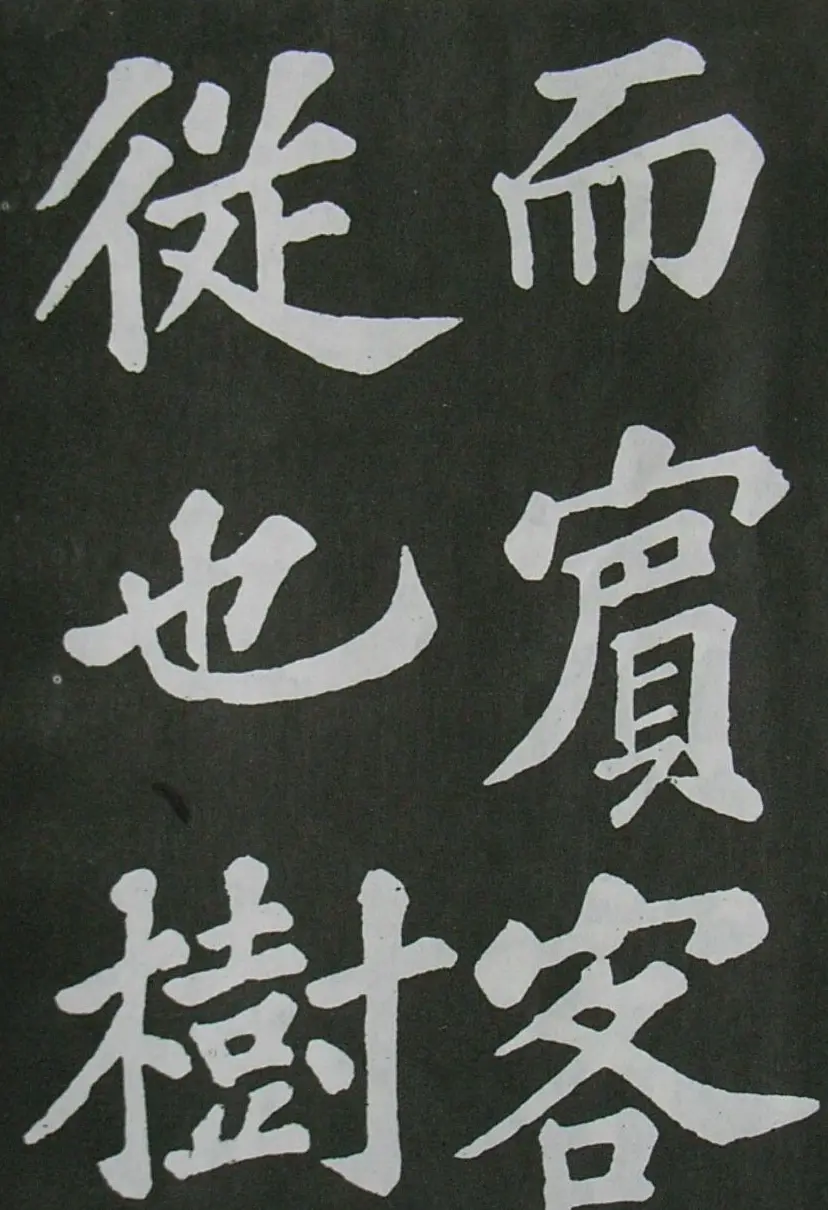 而賓客
從也樹